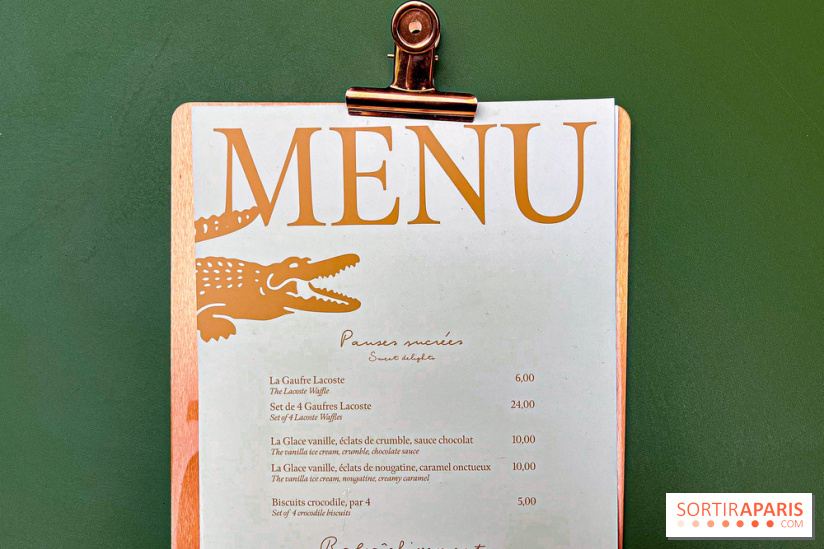 MENU
Pauses sucrées
Sweet delights
La Gaufre Lacoste 6,00
The Lacoste Waffle
Set de 4 Gaufres Lacoste 24,00
Set of 4 Lacoste Waffles
La Glace vanille, éclats de crumble, sauce chocolat 10,00
The vanilla ice cream, crumble, chocolate sauce
La Glace vanille, éclats de nougatine, caramel onctueux 10,00
The vanilla ice cream, nougatine, creamy caramel
Biscuits crocodile, par 4 5,00
Set of 4 crocodile biscuits
SORTIRAPARIS
.COM